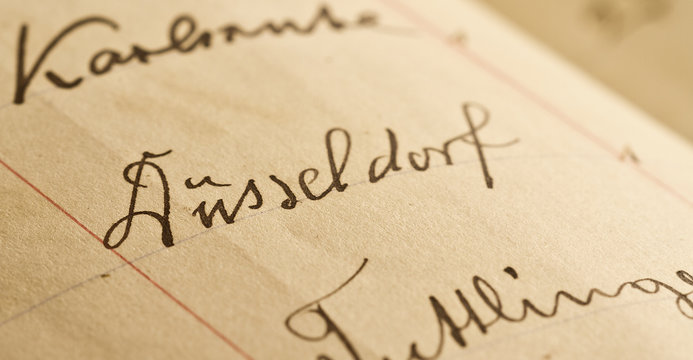 Karlsruhe
Düsseldorf
Tuttlinge